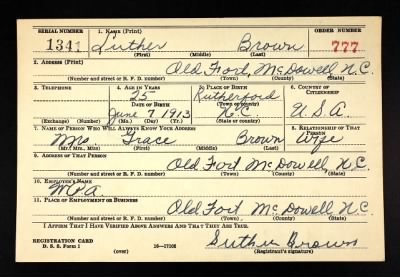 SERIAL NUMBER 1. NAME (Print) ORDER NUMBER
1341 Luther Brown 777
(First) (Middle) (Last)
2. ADDRESS (Print)
Old Fort, McDowell N.C.
(Number and street or R. F. D. number) (Town) (County) (State)
3. TELEPHONE 4. AGE IN YEARS 5. PLACE OF BIRTH 6. COUNTRY OF CITIZENSHIP
25 Rutherford
DATE OF BIRTH (Town or county)
June 7 1913 N.C. U.S.A.
(Exchange) (Number) (Mo.) (Day) (Yr.) (State or country)
7. NAME OF PERSON WHO WILL ALWAYS KNOW YOUR ADDRESS 8. RELATIONSHIP OF THAT PERSON
Mrs Grace Brown Wife
(Mr., Mrs., Miss) (First) (Middle) (Last)
9. ADDRESS OF THAT PERSON
Old Fort McDowell N.C.
(Number and street or R. F. D. number) (Town) (County) (State)
10. EMPLOYER'S NAME
WPA
11. PLACE OF EMPLOYMENT OR BUSINESS
Old Fort McDowell N.C.
(Number and street or R. F. D. number) (Town) (County) (State)
I AFFIRM THAT I HAVE VERIFIED ABOVE ANSWERS AND THAT THEY ARE TRUE.
REGISTRATION CARD
D. S. S. Form 1 (over) 16—17105 Luther Brown
(Registrant's signature)